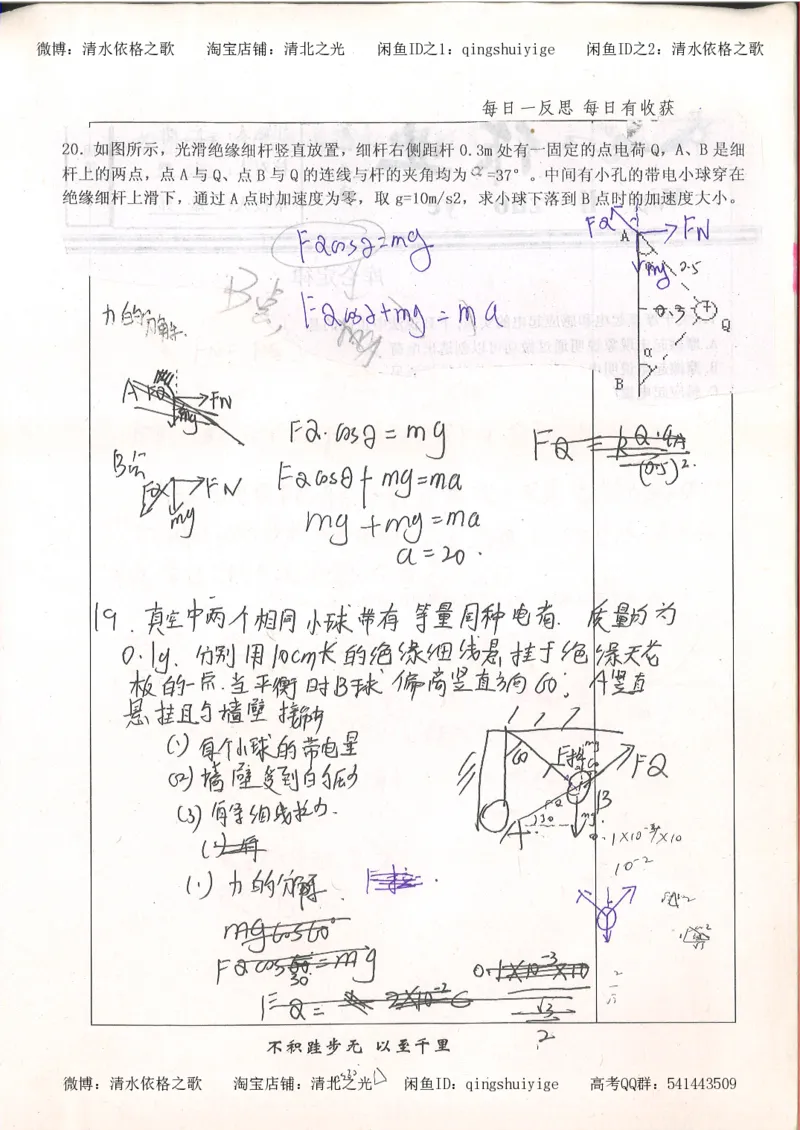 微博：清水依格之歌 淘宝店铺：清北之光 闲鱼ID之1：qingshuiyige 闲鱼ID之2：清水依格之歌
每日一反思 每日有收获
20．如图所示，光滑绝缘细杆竖直放置，细杆右侧距杆 0.3m 处有一固定的点电荷 Q，A、B 是细
杆上的两点，点 A 与 Q、点 B 与 Q 的连线与杆的夹角均为 α =37°。中间有小孔的带电小球穿在
绝缘细杆上滑下，通过 A 点时加速度为零，取 g=10m/s2，求小球下落到 B 点时的加速度大小。
FQ
A
FN
mg
0.5
0.3
+
Q
α
B
FQcos∂=mg
B点，
FQcos∂+mg=ma
力的分解
A FQ
FN
mg
FQ·cos∂=mg
FQ=kQ·qA
(0.5)²
B点
FQ
FN
mg
FQcosθ+mg=ma
mg+mg=ma
a=20.
19．真空中两个相同小球带有等量同种电荷．质量均为
0.1g．分别用10cm长的绝缘细线悬挂于绝缘天花
板的一点．当平衡时B球偏离竖直方向60°，A竖直
悬挂且与墙壁接触
(1) 每个小球的带电量
(2) 墙壁受到的
(3) 每条细线拉力．
60
FQ
B
A
30
mg
0.1×10⁻³×10
10⁻²
(1) 力的分解．
mgcos60°
FQcos30=mg
FQ=
2×10⁻²
0.1×10⁻³×10
√3
2
不积跬步无 以至千里
微博：清水依格之歌 淘宝店铺：清北之光 闲鱼ID：qingshuiyige 高考QQ群：541443509